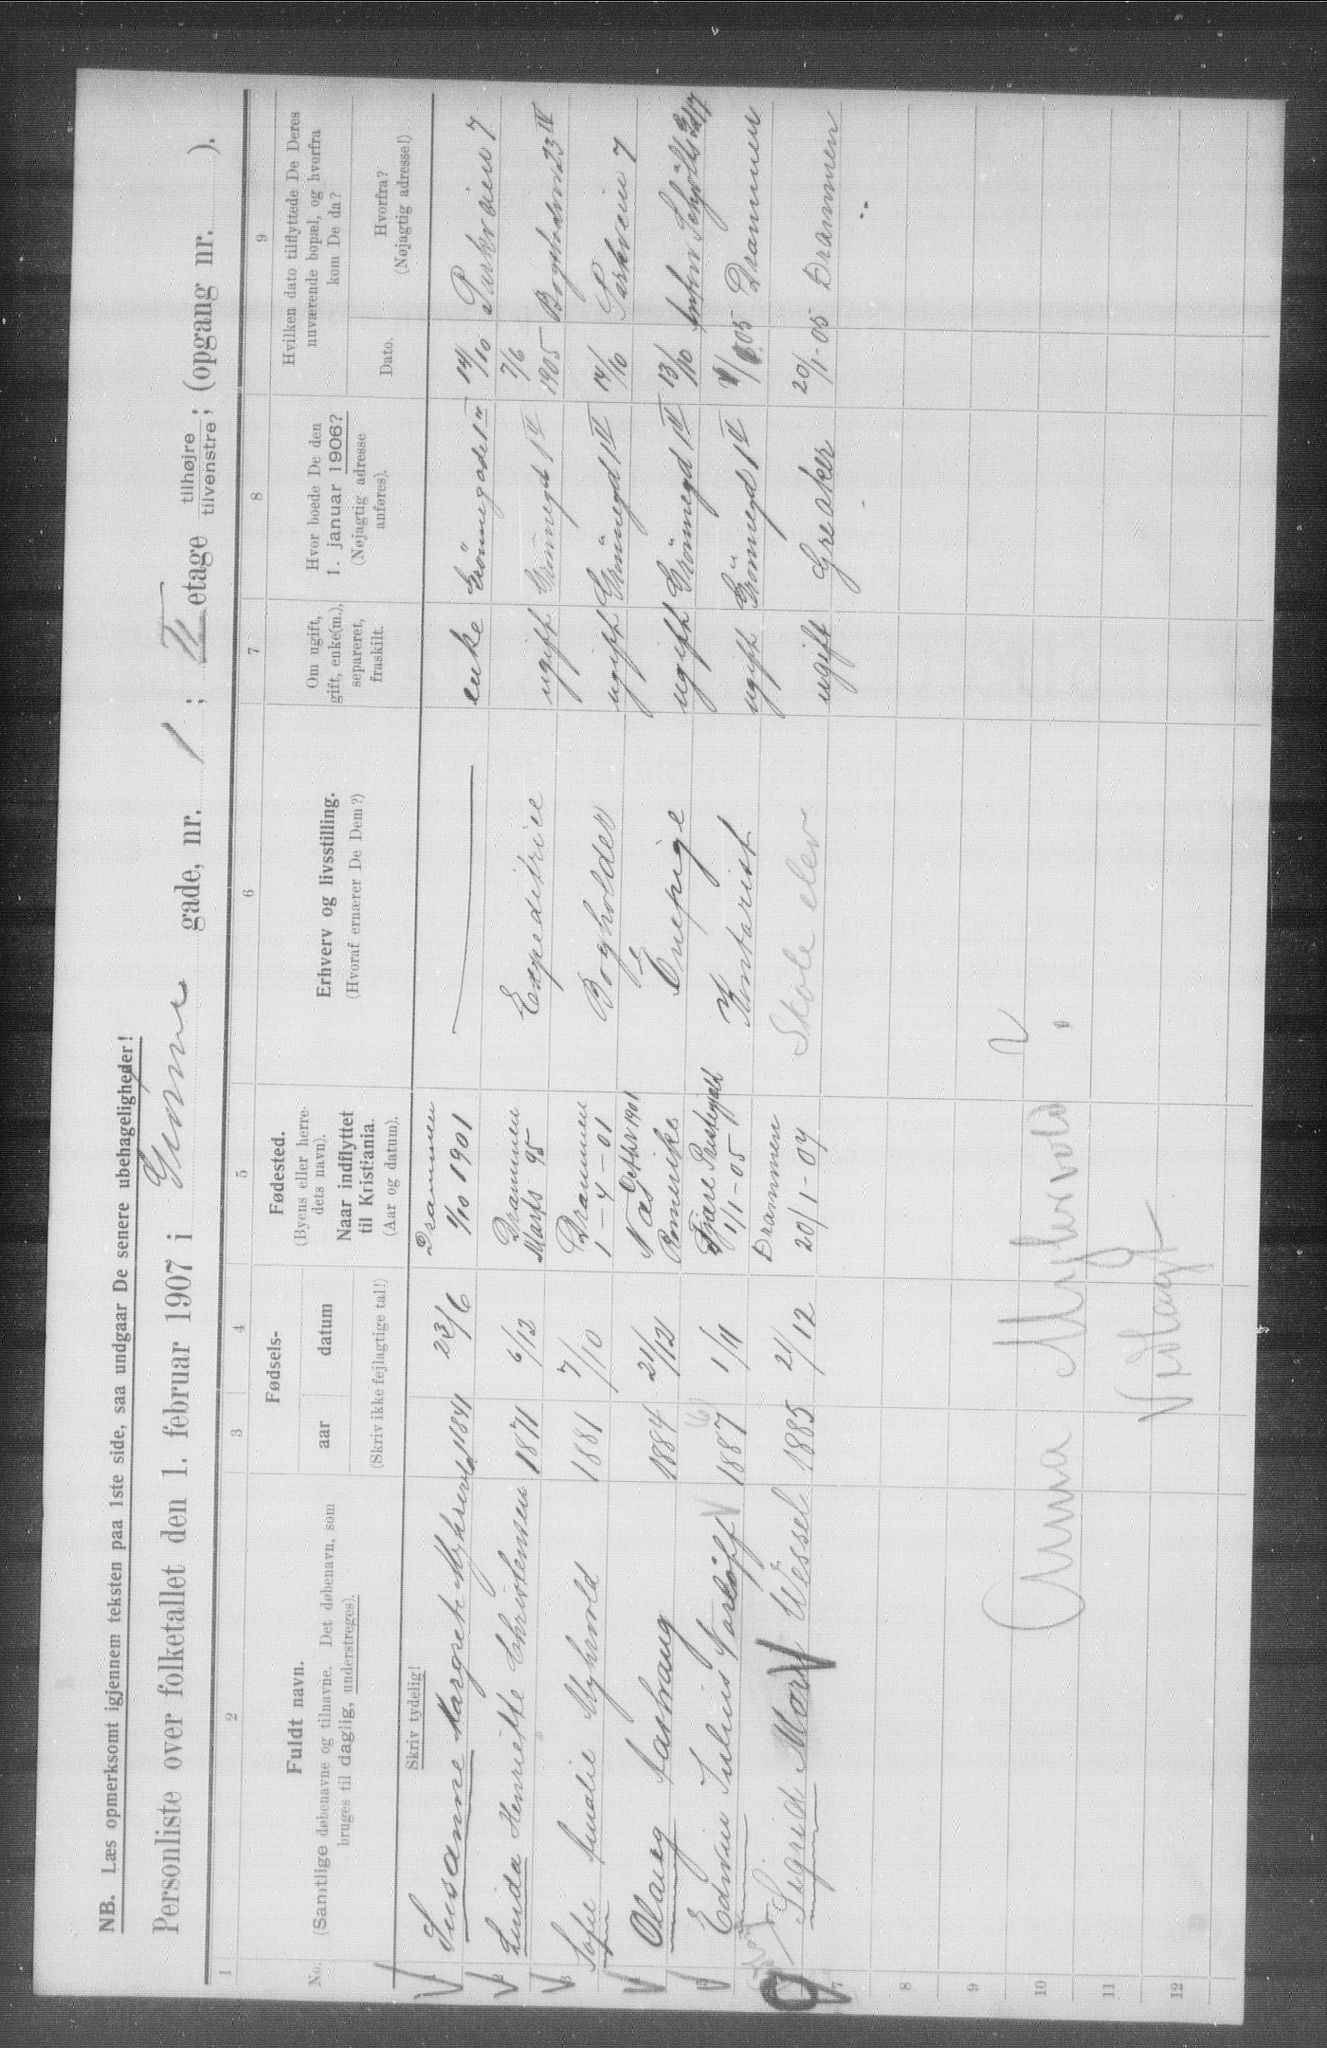 NB. Læs opmerksomt igjennem teksten paa 1ste side, saa undgaar De senere ubehageligheder!
Personliste over folketallet den 1. februar 1907 i Grønne gade, nr. 1; IV etage tilhøjre tilvenstre; (opgang nr. ).
1 2 3 4 5 6 7 8 9
No. Fuldt navn. (Samtlige døbenavne og tilnavne. Det døbenavn, som bruges til daglig, understreges).
Fødsels- aar datum (Skriv ikke fejlagtige tal!)
Fødested. (Byens eller herredets navn). Naar indflyttet til Kristiania. (Aar og datum).
Erhverv og livsstilling. (Hvoraf ernærer De Dem?)
Om ugift, gift, enke(m.), separeret, fraskilt.
Hvor boede De den 1. januar 1906? (Nøjagtig adresse anføres).
Hvilken dato tilflyttede De Deres nuværende bopæl, og hvorfra kom De da?
Dato. Hvorfra? (Nøjagtig adresse!)
Skriv tydelig!
1 Susanne Margrete Myhrvold 1841 23/6 Drammen 1/10 1901 — enke Grønnegade 1 14/10 Parkveien 7
2 Linda Henriette Christensen 1871 6/12 Drammen Marts 95 Expeditrice ugift Grønnegd 1 IV 7/6 1905 23 IV
3 Sofie Amalie Myhrvold 1881 7/10 Drammen 1-4-01 Bogholder ugift Grønnegd 1 IV 14/10 Parkveien 7
4 Olaug Aastraug 1884 21/12 Næs Romerike 1901 Enepige ugift Grønnegd 1 IV 13/10
5 Edvin Julius 1887 1/11 1/1-05 Kontorist ugift Grønnegd 1 IV 1/1 05 Drammen
6 Sigrid Marie Wessel 1885 21/12 Drammen 20/1-07 Skoleelev ugift Greaker 20/1-05 Drammen
7
8
9
10 Anna Myhrvold ?
11
12